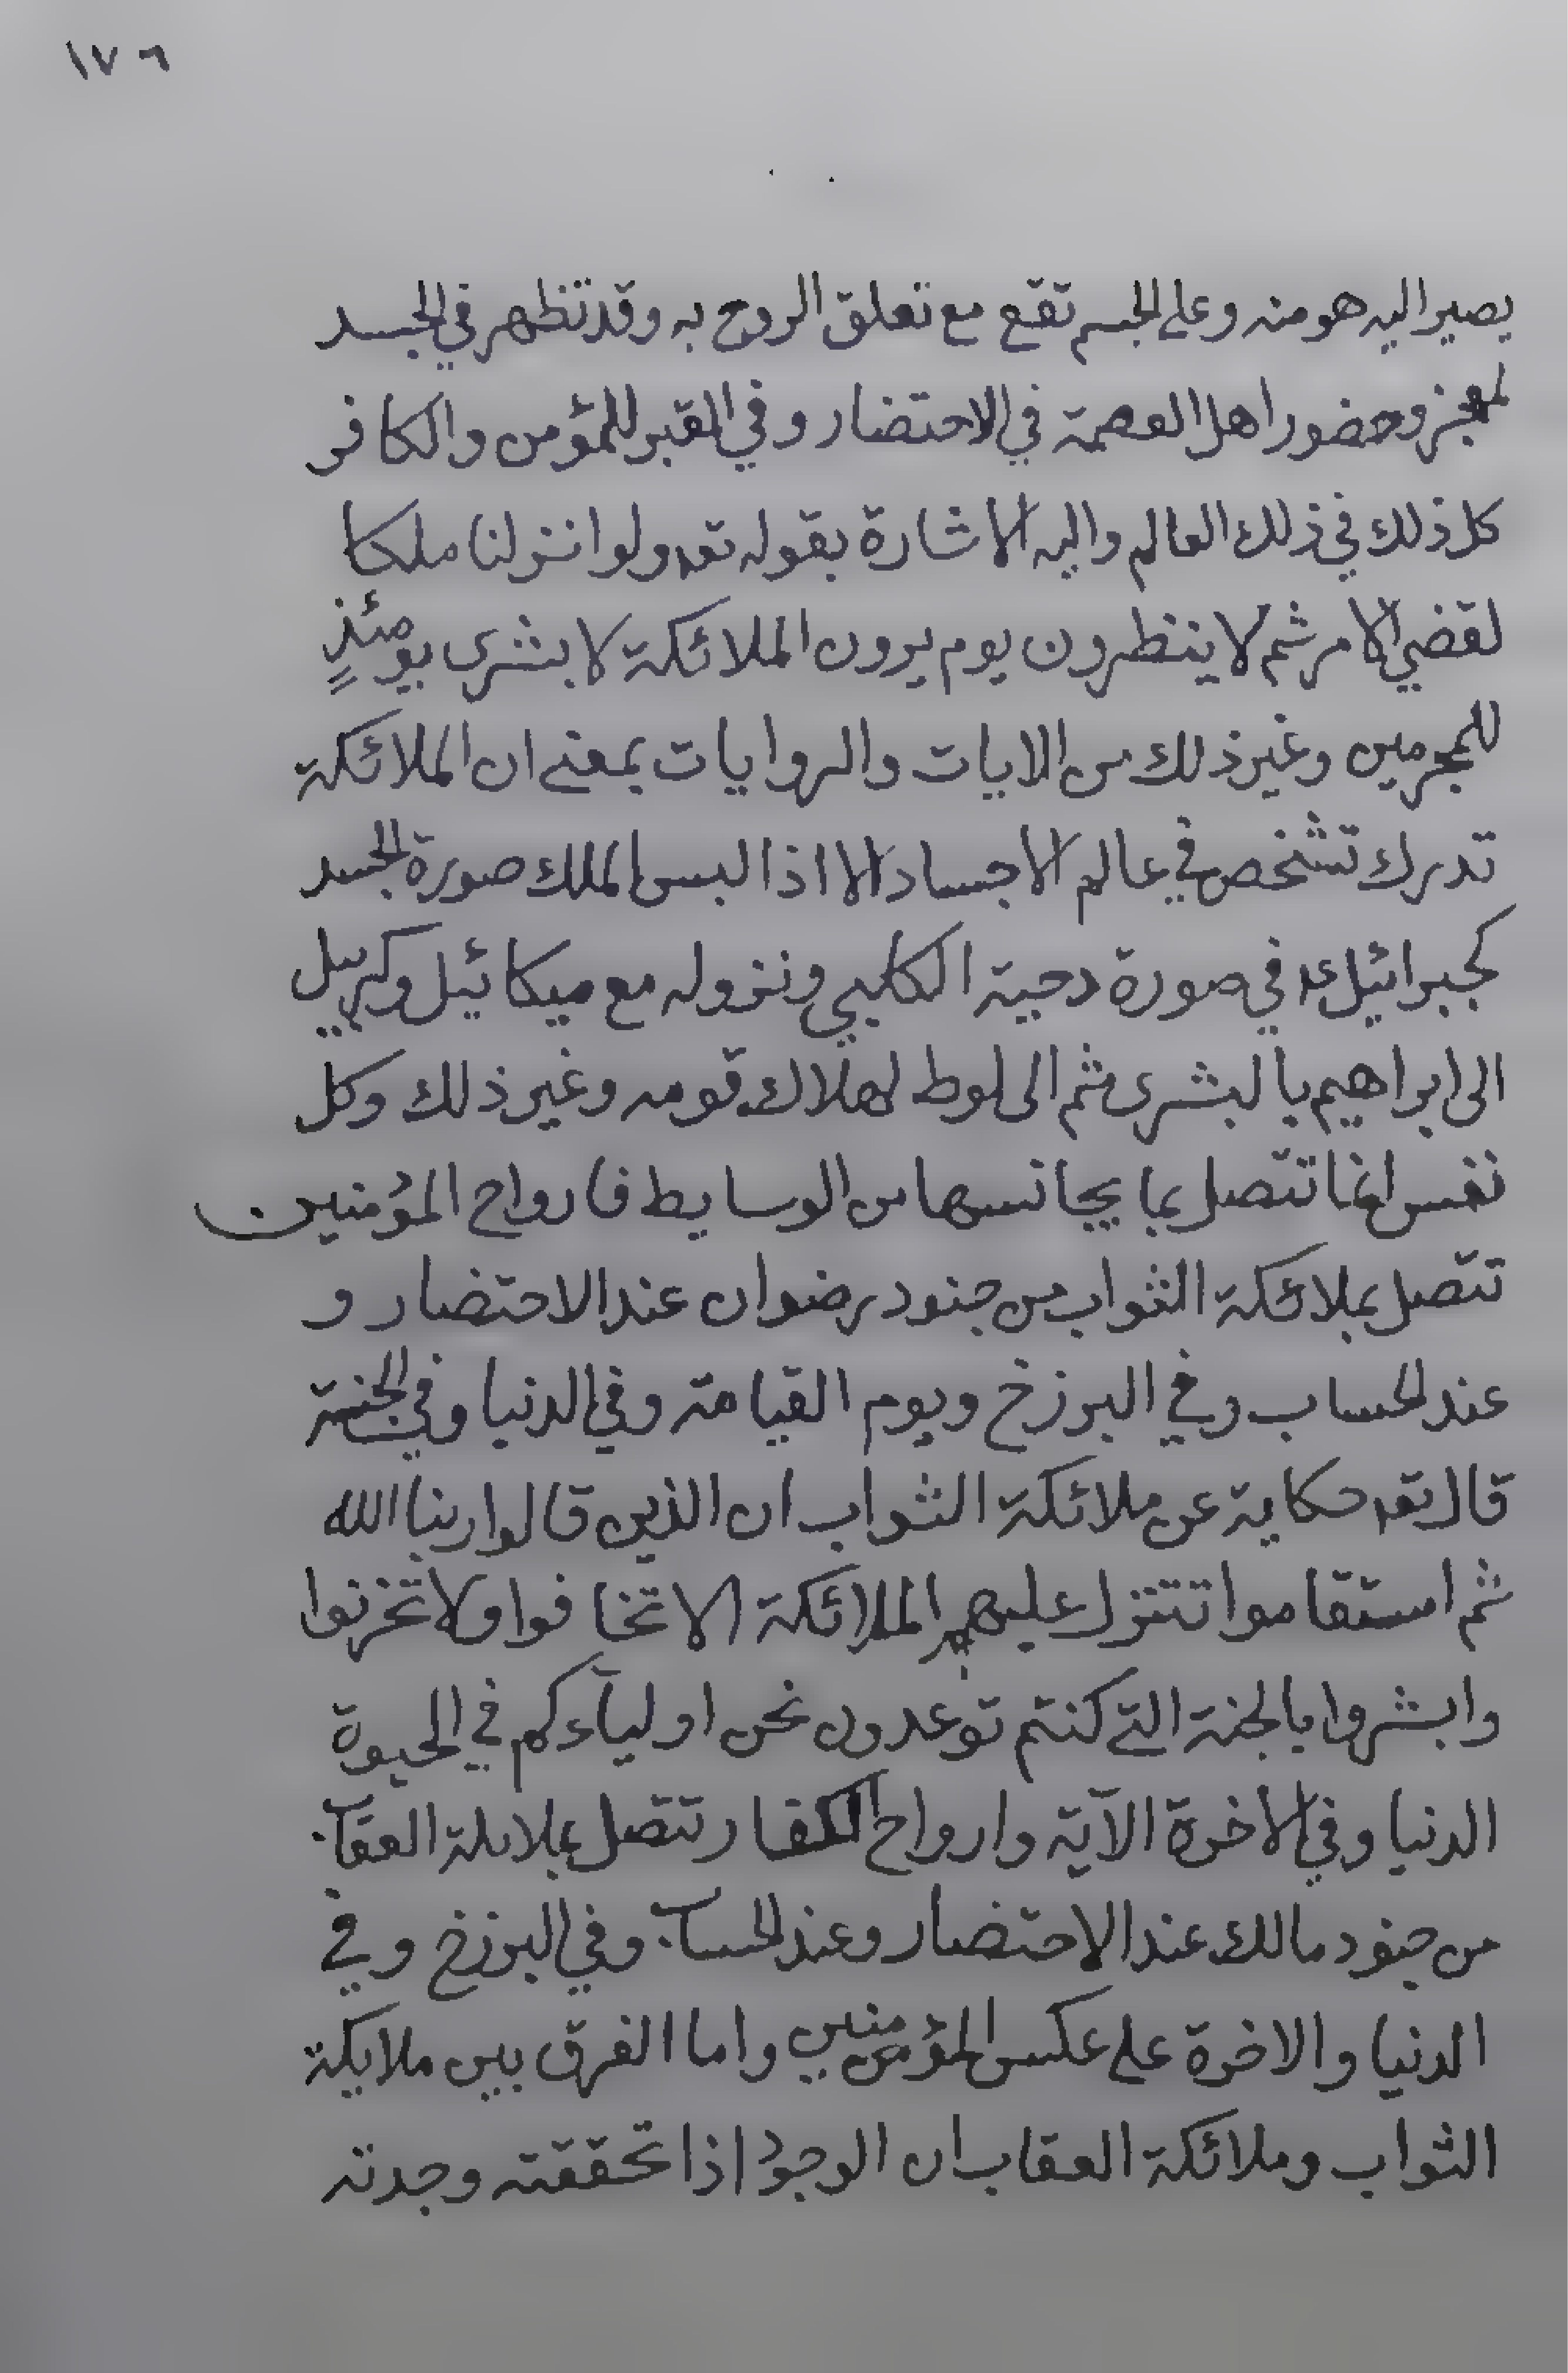 ١٧٦
يصير اليه هو منه وعلى الجسم تقع مع تعلق الروح به وقد تظهر في الجسد
لمعجز وحضور اهل العصمة في الاحتضار وفي القبر للمؤمن والكافر
كل ذلك في ذلك العالم واليه الاشارة بقوله تعه ولو انزلنا ملكا
لقضي الامر ثم لا ينظرون يوم يرون الملائكة لا بشرى يومئذٍ
للمجرمين وغير ذلك من الايات والروايات بمعنى ان الملائكة
تدرك تشخص في عالم الاجساد الا اذا لبس الملك صورة الجسد
كجبرائيل ع في صورة دحية الكلبي ونزوله مع ميكائيل وكربيل
الى ابراهيم بالبشرى ثم الى لوط لهلاك قومه وغير ذلك وكل
نفس انما تتصل بما يجانسها من الوسايط فارواح المؤمنين
تتصل بملائكة الثواب من جنود رضوان عند الاحتضار و
عند الحساب وفي البرزخ ويوم القيامة وفي الدنيا وفي الجنة
قال تعه حكاية عن ملائكة الثواب ان الذين قالوا ربنا الله
ثم استقاموا تتنزل عليهم الملائكة الا تخافوا ولا تحزنوا
وابشروا بالجنة التي كنتم توعدون نحن اولياءكم في الحيوة
الدنيا وفي الاخرة الآية وارواح الكفار تتصل بملائكة العقاب
من جنود مالك عند الاحتضار وعند الحساب وفي البرزخ وفي
الدنيا والاخرة على عكس المؤمنين واما الفرق بين ملايكة
الثواب وملائكة العقاب ان الوجود اذا تحققته وجدته